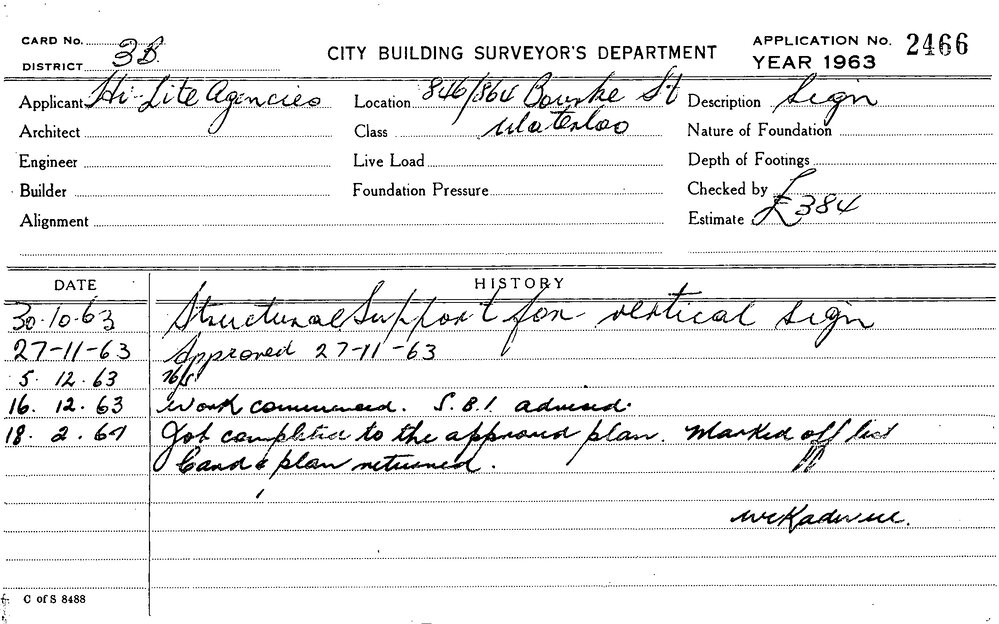 CARD No.
DISTRICT 3B.
CITY BUILDING SURVEYOR'S DEPARTMENT
APPLICATION No. 2466
YEAR 1963
Applicant Hi-Lite Agencies
Location 846/864 Bourke St
Description Sign
Architect
Class Waterloo
Nature of Foundation
Engineer
Live Load
Depth of Footings
Builder
Foundation Pressure
Checked by
Alignment
Estimate £384
DATE HISTORY
30.10.63 Structural Support for vertical sign
27-11-63 Approved 27-11-63
5. 12.63
16. 12.63 Work commenced. S.B.I. advised.
18. 2.64 Job completed to the approved plan. Marked off list
Card & plan returned.
C of S 8488